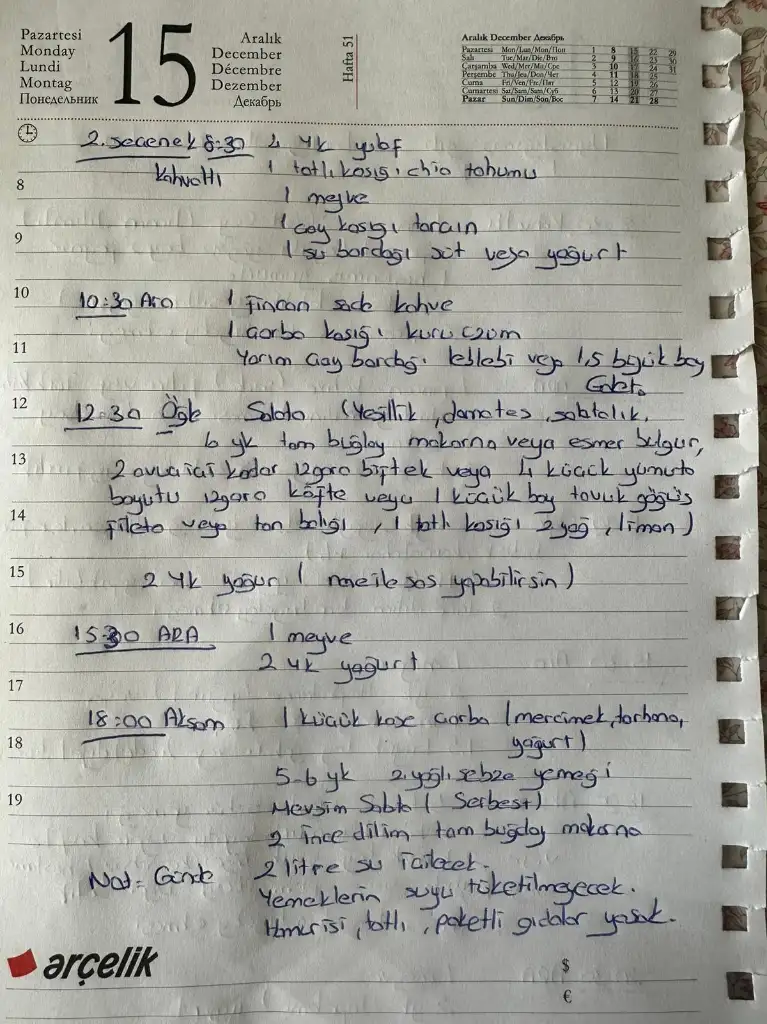 Pazartesi
Monday
Lundi
Montag
Понедельник
15
Aralık
December
Décembre
Dezember
Декабрь
Hafta 51
Aralık December Декабрь
Pazartesi Mon/Lun/Mon/Пон 1 8 15 22 29
Salı Tue/Mar/Die/Вто 2 9 16 23 30
Çarşamba Wed/Mer/Mit/Сре 3 10 17 24 31
Perşembe Thu/Jeu/Don/Чет 4 11 18 25
Cuma Fri/Ven/Fre/Пят 5 12 19 26
Cumartesi Sat/Sam/Sam/Суб 6 13 20 27
Pazar Sun/Dim/Son/Вос 7 14 21 28
2. seçenek 8:30 4 yk yulaf
Kahvaltı 1 tatlı kaşığı chia tohumu
8
1 meyve
1 çay kaşığı tarçın
9
1 su bardağı süt veya yoğurt
10
10:30 Ara 1 fincan sade kahve
1 çorba kaşığı kuru üzüm
11
Yarım çay bardağı leblebi veya 1,5 büyük boy
Galeta
12
12:30 Öğle Salata (Yeşillik, domates, salatalık,
6 yk tam buğday makarna veya esmer bulgur,
13
2 avuç içi kadar ızgara biftek veya 4 küçük yumurta
boyutu ızgara köfte veya 1 küçük boy tavuk göğüs
14
fileto veya ton balığı, 1 tatlı kaşığı z.yağ, limon)
15
2 yk yoğur (nane ile sos yapabilirsin)
16
15:30 ARA 1 meyve
2 yk yoğurt
17
18:00 Akşam 1 küçük kase çorba (mercimek, tarhana,
18
yoğurt)
5-6 yk z.yağlı sebze yemeği
19
Mevsim Salata (Serbest)
2 ince dilim tam buğday makarna
Not = Günde 2 litre su içilecek.
Yemeklerin suyu tüketilmeyecek.
Hamur işi, tatlı, paketli gıdalar yasak.
arçelik
$
€